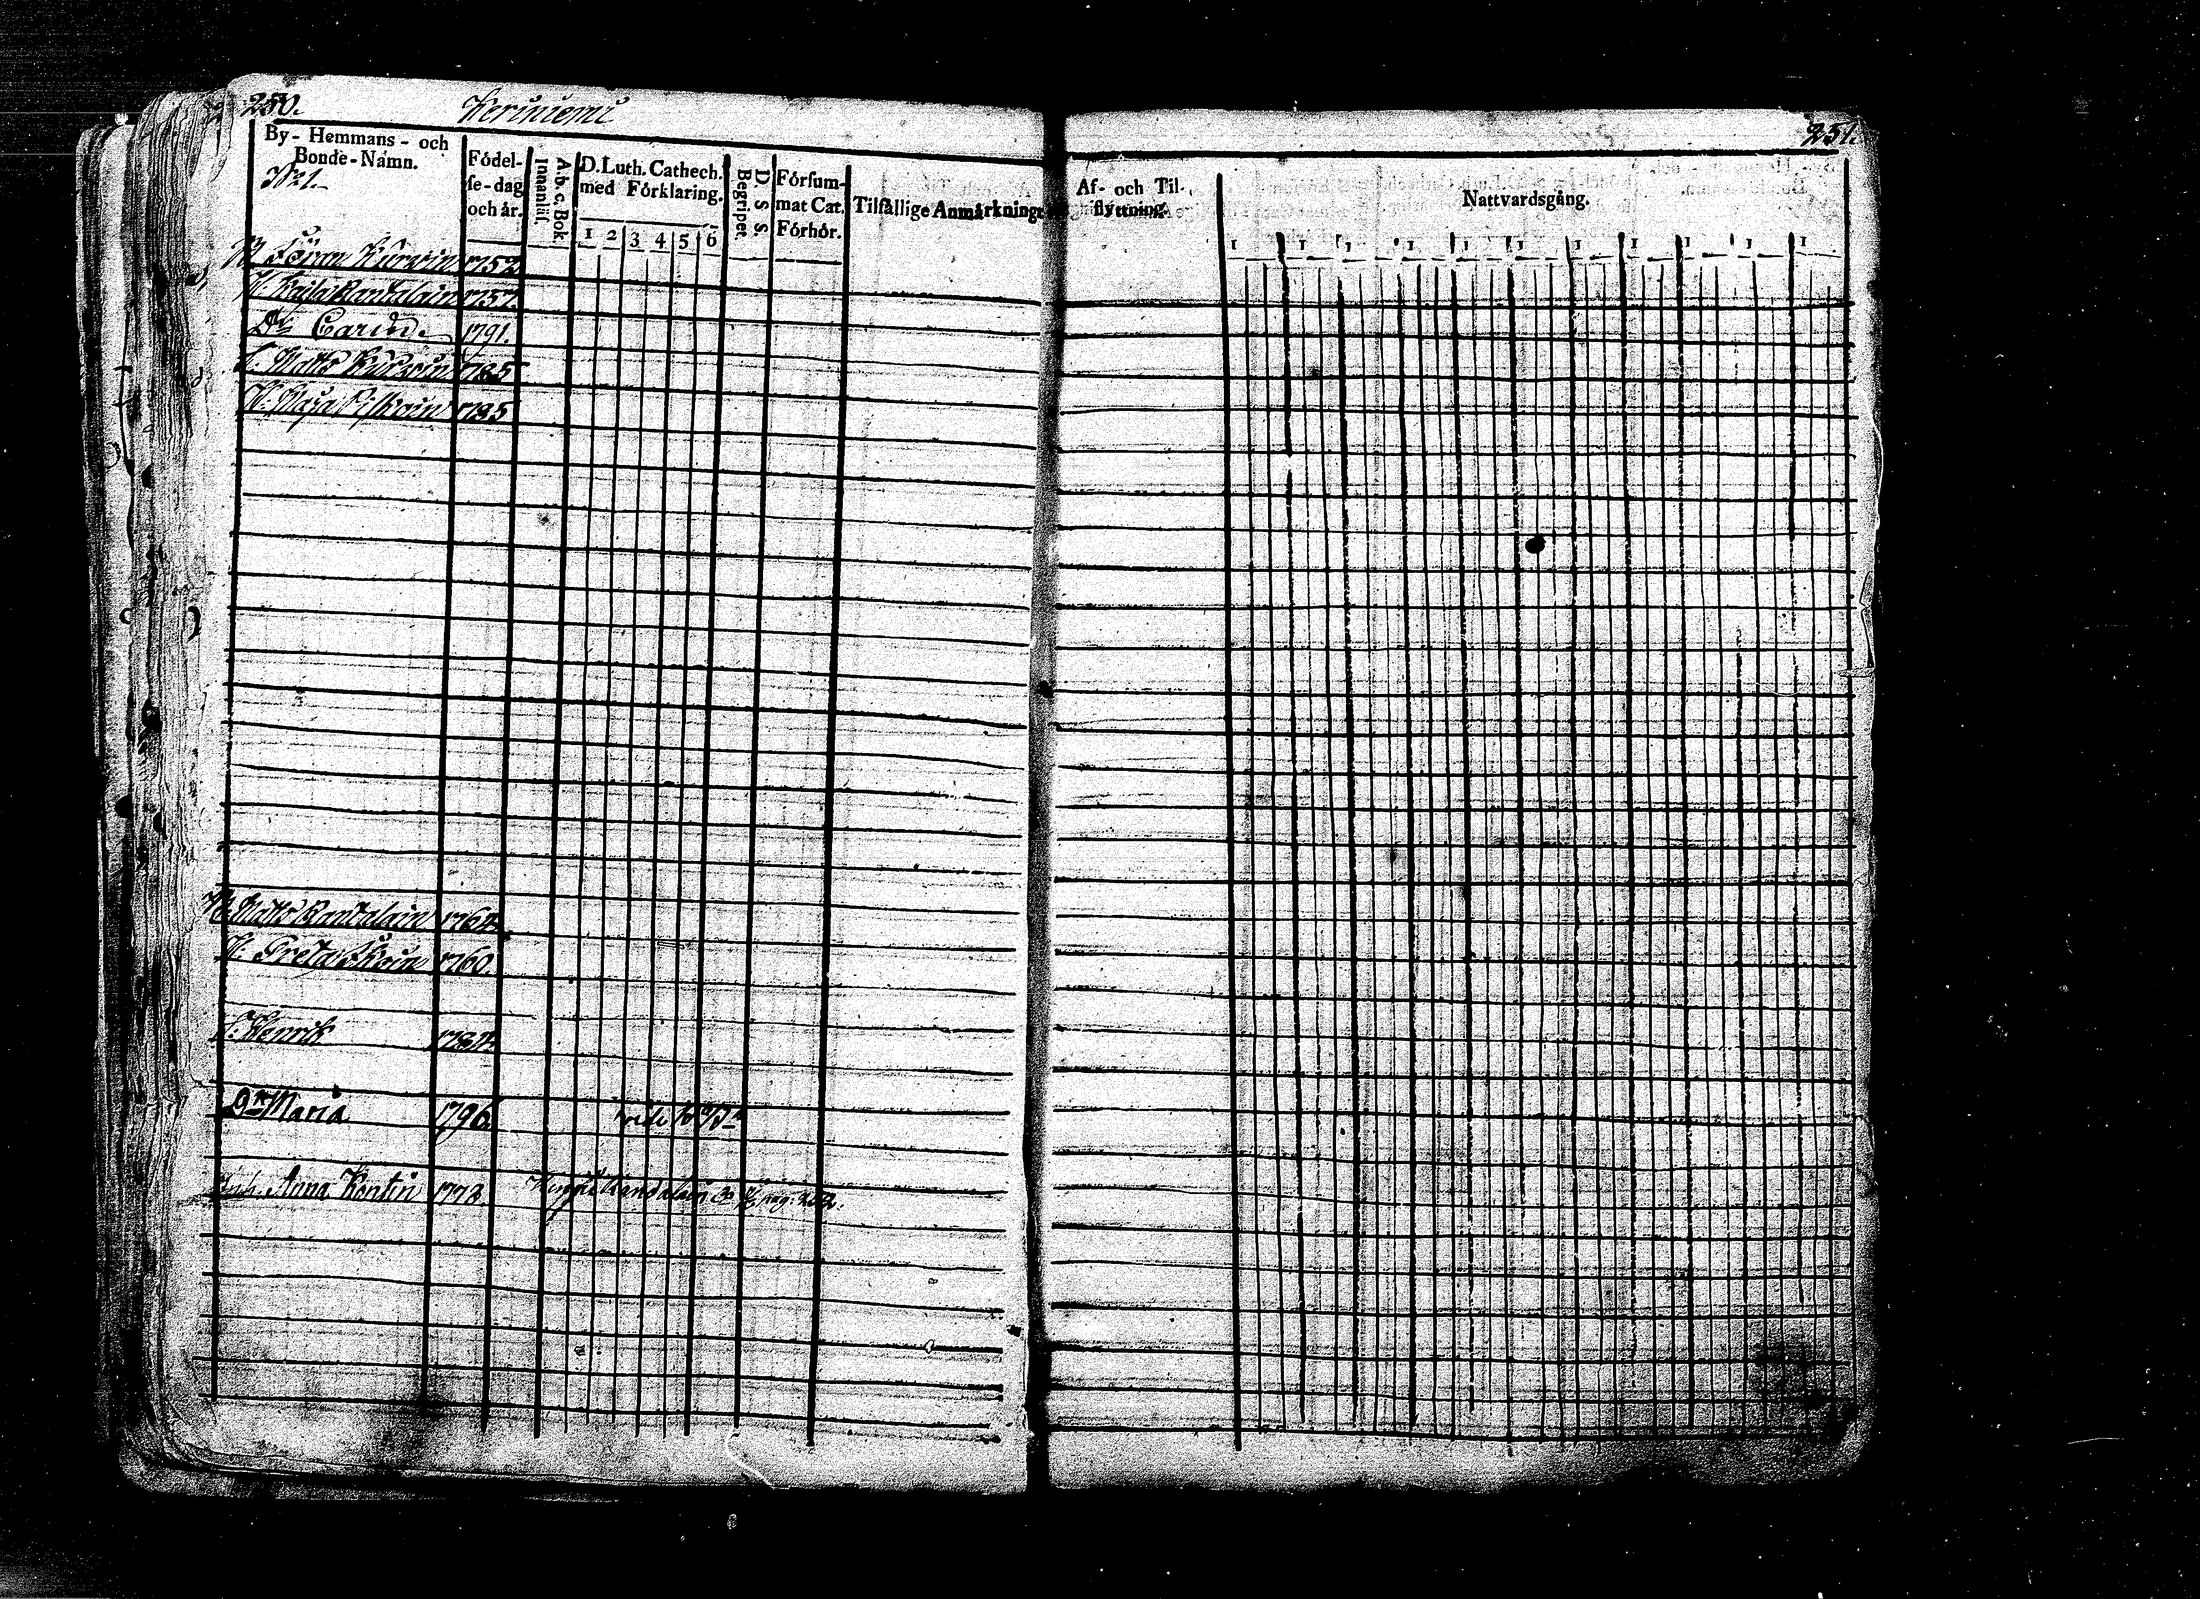 250.
Keriniemi
By- Hemmans- och
Bonde-Namn.
No 1.
Fódel-
se-dag
och år.
A.b.c. Bok
Innanläs.
D. Luth. Cathech.
med Fórklaring.
1 2 3 4 5 6
D. S. S.
Begripet.
Fórsum-
mat Cat.
Fórhór.
Tilfällige Anmärkning
1752
1757.
Dr Carin 1791.
S. Matts 1785
H. Maja 1785
Matts Kandalain 1764
H. Greta 1760.
S. Henrik
Dr Maria 1796. vide
Anna Kontin 1773. Kandalain pag: 252.
251.
Af- och Til-
flyttning.
Nattvardsgång.
1 1 1 1 1 1 1 1 1 1 1 1